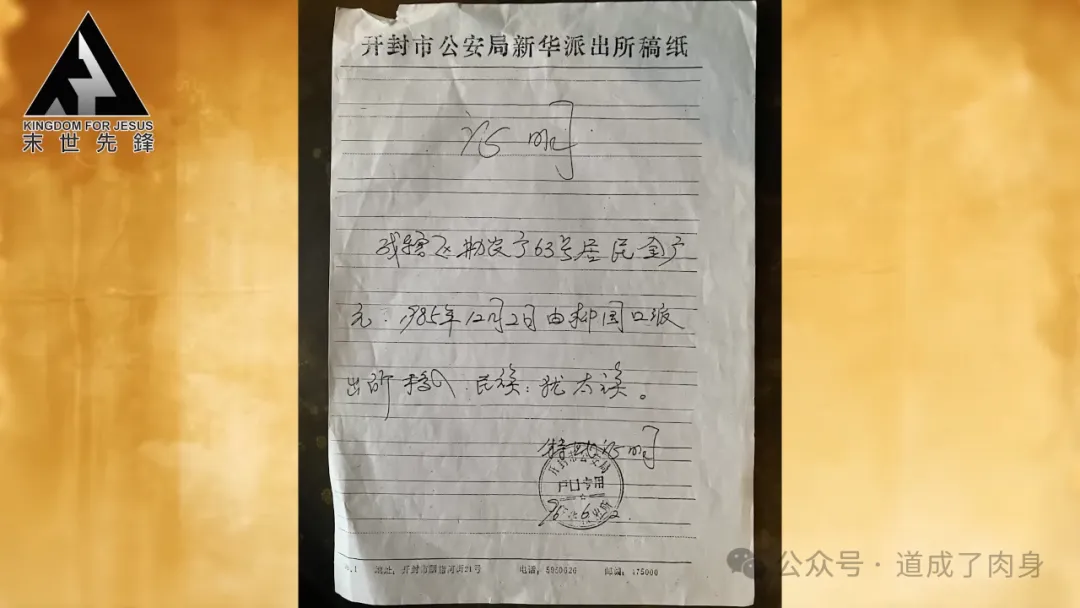 KINGDOM FOR JESUS
末世先鋒
开封市公安局新华派出所稿纸
证明
我辖区勤农亍63号居民金广
元.1985年12月2日由柳园口派
出所移入.民族:犹太族。
特此证明
开封市公安局
户口专用
96.6.2.
地址:开封市 河街21号 电话:5950620 邮编:475000
公众号·道成了肉身